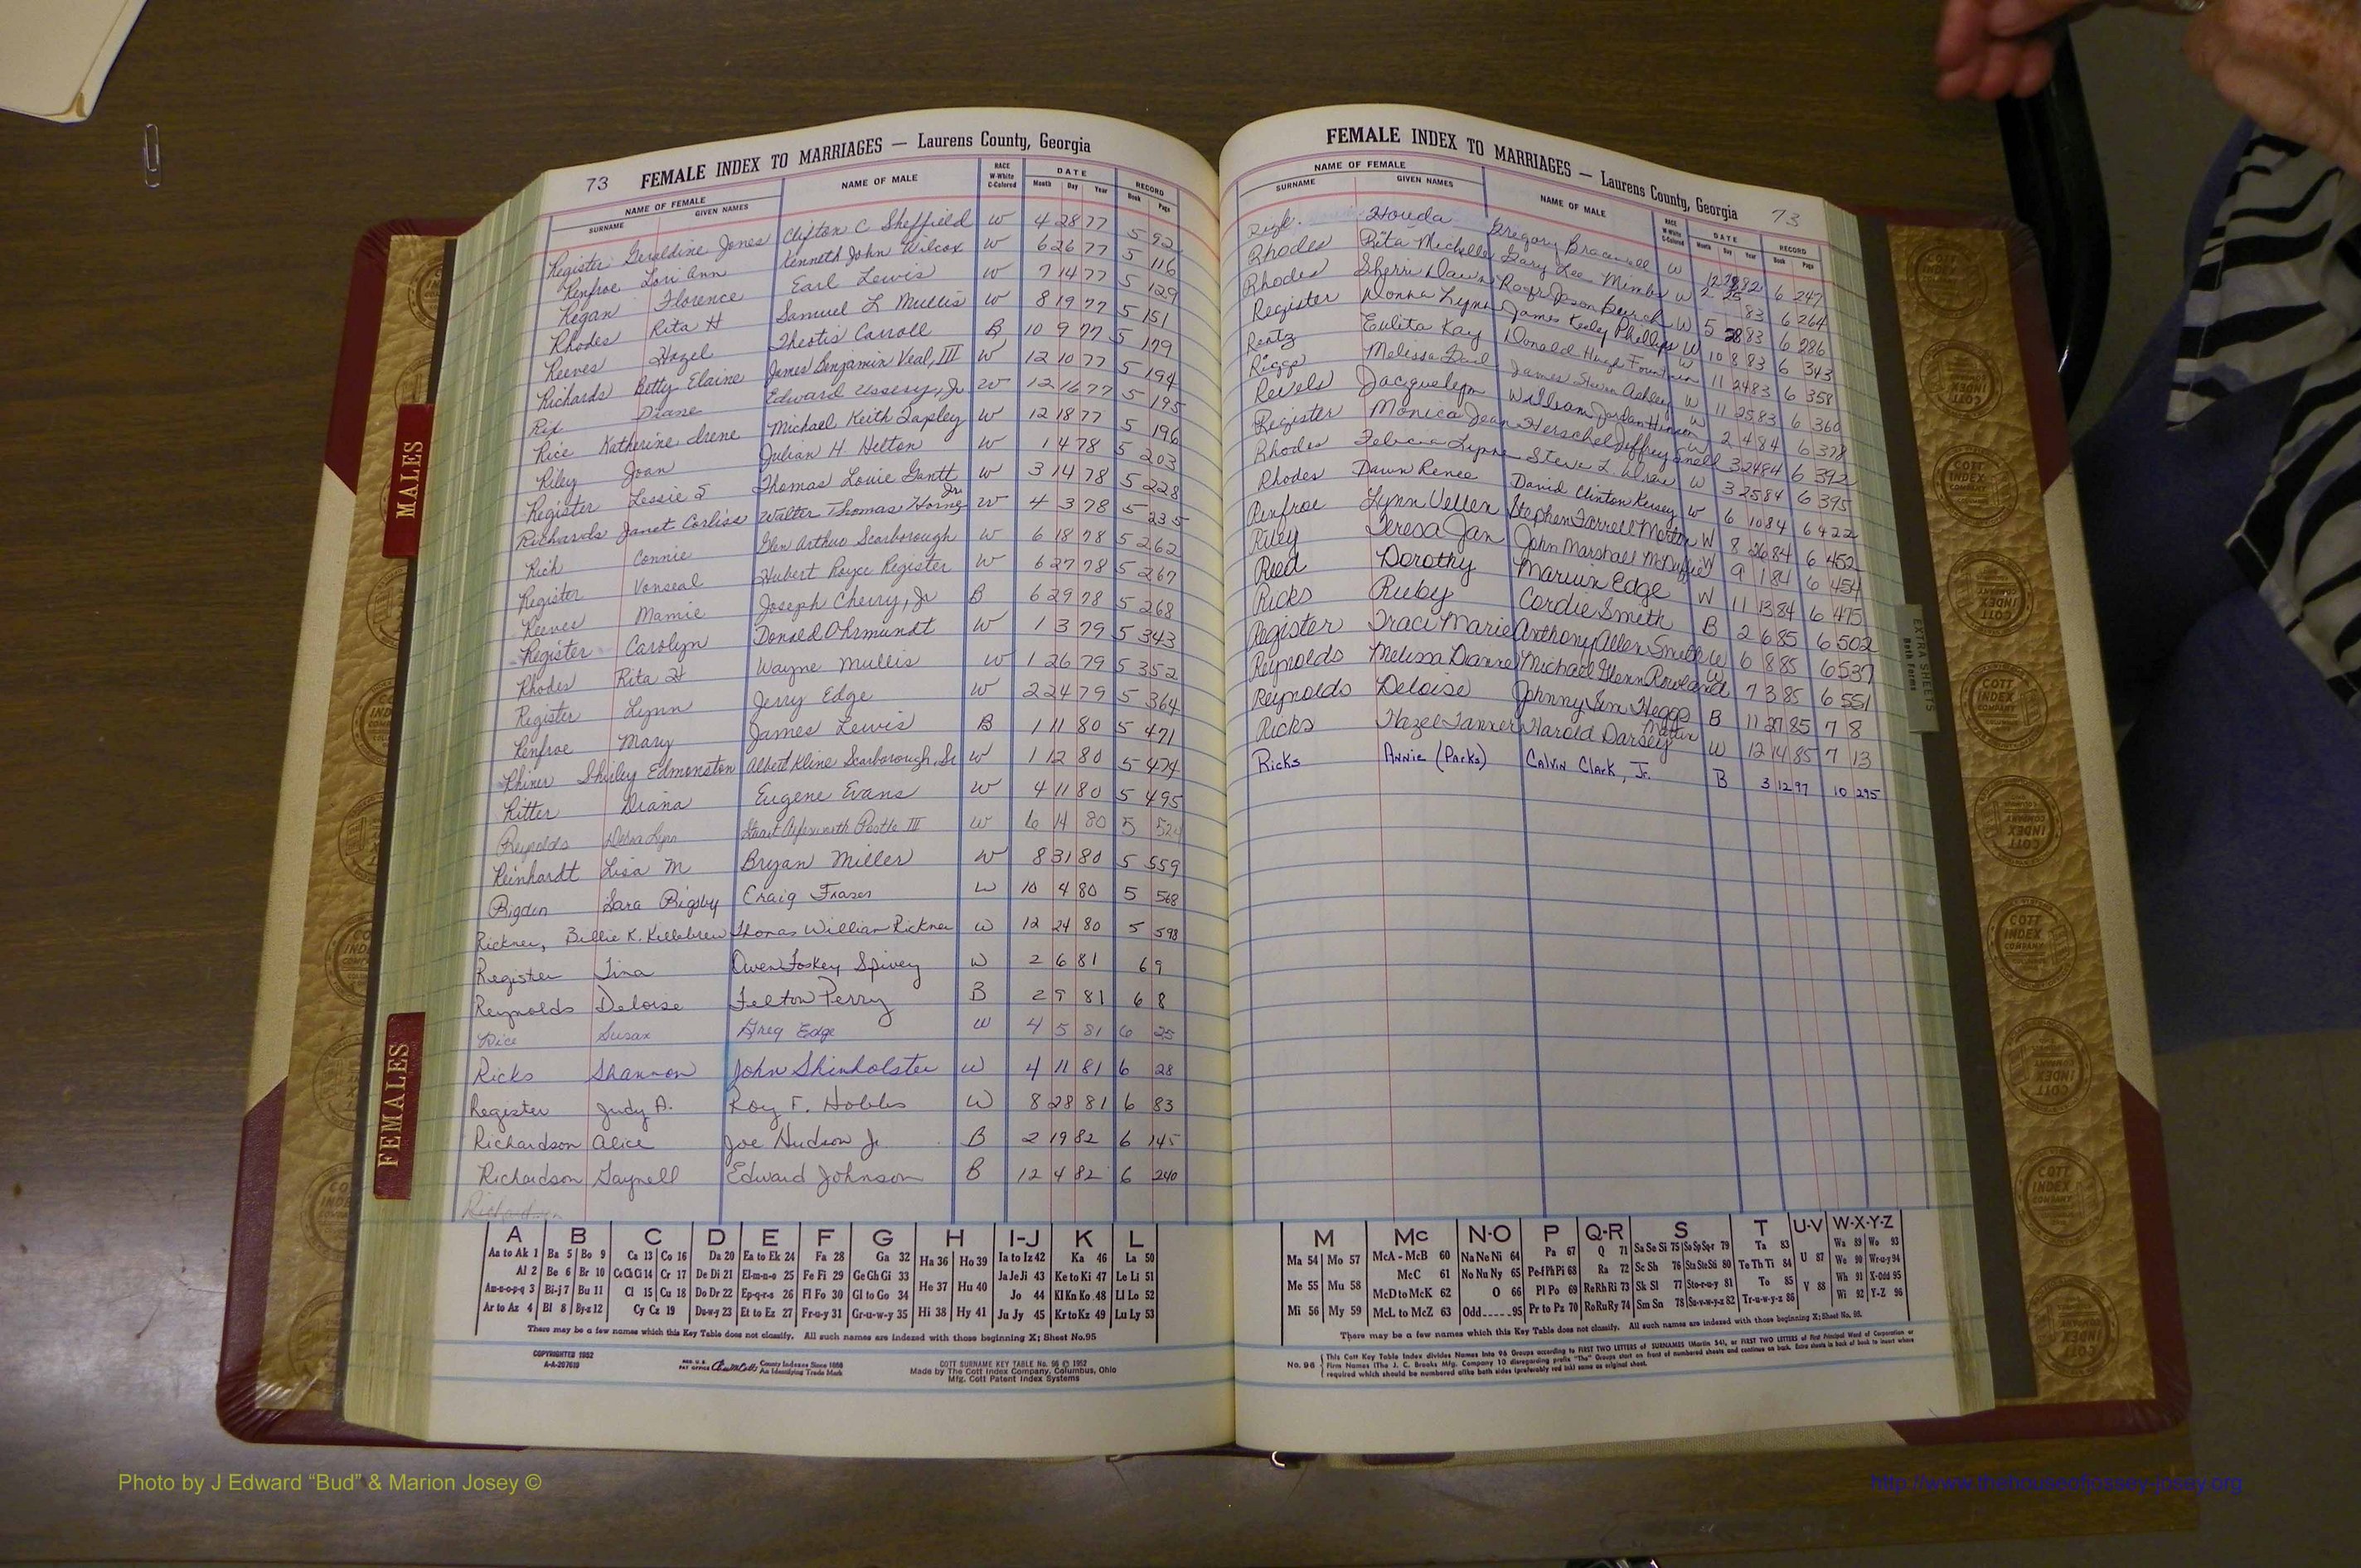 73 FEMALE INDEX TO MARRIAGES — Laurens County, Georgia
NAME OF FEMALE NAME OF MALE RACE W-White C-Colored DATE RECORD
SURNAME GIVEN NAMES Month Day Year Book Page
Register Geraldine Jones Clifton C Sheffield W 4 28 77 5 92
Renfroe Lori Ann Kenneth John Wilcox W 6 26 77 5 116
Regan Florence Earl Lewis W 7 14 77 5 129
Rhodes Rita H Samuel L Mullis W 8 19 77 5 151
Reeves Hazel Theotis Carroll B 10 9 77 5 179
Richards Betty Elaine James Benjamin Veal, III W 12 10 77 5 194
Rix Diane Edward Ussery, Jr W 12 16 77 5 195
Rice Katherine Irene Michael Keith Tapley W 12 18 77 5 196
Riley Joan Julian H. Helton W 1 4 78 5 203
Register Lessie S Thomas Louie Gantt W 3 14 78 5 228
Richards Janet Corliss Walter Thomas Horne Jr W 4 3 78 5 235
Rich Connie Glen Arthur Scarborough W 6 18 78 5 262
Register Vonseal Hubert Royce Register W 6 27 78 5 267
Reeves Mamie Joseph Cherry, Jr B 6 29 78 5 268
Register Carolyn Donald Ohrmundt W 1 3 79 5 343
Rhodes Rita H Wayne Mullis W 1 26 79 5 352
Register Lynn Jerry Edge W 2 24 79 5 364
Renfroe Mary James Lewis B 1 11 80 5 471
Rhiner Shirley Edmonston Albert Kline Scarborough, Sr W 1 12 80 5 474
Ritter Diana Eugene Evans W 4 11 80 5 495
Reynolds Debra Lynn Stuart Postle III W 6 14 80 5 524
Reinhardt Lisa M Bryan Miller W 8 31 80 5 559
Rigdon Sara Rigsby Craig Fraser W 10 4 80 5 568
Rickner, Billie K. Killebrew Thomas William Rickner W 12 24 80 5 598
Register Tina Owen Foskey Spivey W 2 6 81 6 9
Reynolds Deloise Felton Perry B 2 9 81 6 8
Rice Susan Greg Edge W 4 5 81 6 25
Ricks Shannon John Shinholster W 4 11 81 6 28
Register Judy A. Roy F. Hobbs W 8 28 81 6 83
Richardson Alice Joe Hudson Jr. B 2 19 82 6 145
Richardson Gaynell Edward Johnson B 12 4 82 6 240
Richardson
A B C D E F G H I-J K L
Aa to Ak 1 Ba 5 Bo 9 Ca 13 Co 16 Da 20 Ea to Ek 24 Fa 28 Ga 32 Ha 36 Ho 39 Ia to Iz 42 Ka 46 La 50
Al 2 Be 6 Br 10 Ce Ch Ci 14 Cr 17 De Di 21 El-m-n-o 25 Fe Fi 29 Ge Gh Gi 33 He 37 Hu 40 Ja Je Ji 43 Ke to Ki 47 Le Li 51
Am-n-o-p-q 3 Bi-j 7 Bu 11 Cl 15 Cu 18 Do Dr 22 Ep-q-r-s 26 Fl Fo 30 Gl to Go 34 Jo 44 Kl Kn Ko 48 Ll Lo 52
Ar to Az 4 Bl 8 By-z 12 Cy Cz 19 Du-w-y 23 Et to Ez 27 Fr-u-y 31 Gr-u-w-y 35 Hi 38 Hy 41 Ju Jy 45 Kr to Kz 49 Lu Ly 53
There may be a few names which this Key Table does not classify. All such names are indexed with those beginning X; Sheet No.95
COPYRIGHTED 1952
A-A-207610
REG. U.S. PAT OFFICE County Indexes Since 1888
An Identifying Trade Mark
COTT SURNAME KEY TABLE No. 96 © 1952
Made by The Cott Index Company, Columbus, Ohio
Mfg. Cott Patent Index Systems
FEMALE INDEX TO MARRIAGES — Laurens County, Georgia 73
NAME OF FEMALE NAME OF MALE RACE W-White C-Colored DATE RECORD
SURNAME GIVEN NAMES Month Day Year Book Page
Gregory Bracewell W 12 82 6 247
Rhodes Rita Michelle Gary Lee Mimbs W 2 25 83 6 264
Rhodes Sherri Dawn Roger Jason Burch W 5 28 83 6 286
Register Donna Lynn James Kesley Phillips W 10 8 83 6 343
Rentz Eulita Kay Donald Hugh Fountain W 11 24 83 6 358
Riggs Melissa Gail James Steven Ashley W 11 25 83 6 360
Revels Jacquelyn William Jordan Hinson W 2 4 84 6 378
Register Monica Jean Herschel Jeffrey Snell W 3 24 84 6 392
Rhodes Felecia Lynne Steve L. W 3 25 84 6 395
Rhodes Dawn Renee David Clinton Kersey W 6 10 84 6 422
Renfroe Lynn Vellen Stephen Farrell Martin W 8 26 84 6 452
Riley Teresa Jan John Marshall McDuffie W 9 1 84 6 454
Reed Dorothy Marvin Edge W 11 13 84 6 475
Ricks Ruby Cordie Smith B 2 6 85 6 502
Register Traci Marie Anthony Allen Smith W 6 8 85 6 537
Reynolds Melissa Dianne Michael Glenn Rowland W 7 3 85 6 551
Reynolds Deloise Johnny Sim Heggs B 11 27 85 7 8
Ricks Hazel Tanner Harold Darsey Martin W 12 14 85 7 13
Ricks Annie (Parks) Calvin Clark, Jr. B 3 12 97 10 295
M Mc N-O P Q-R S T U-V W-X-Y-Z
Ma 54 Mo 57 McA - McB 60 Na Ne Ni 64 Pa 67 Q 71 Sa Se Si 75 So Sp Sq-r 79 Ta 83 U 87 Wa 89 Wo 93
McC 61 No Nu Ny 65 Pe-f Ph Pi 68 Ra 72 Sc Sh 76 Sta Ste Sti 80 Te Th Ti 84 We 90 Wr-u-y 94
Me 55 Mu 58 McD to McK 62 O 66 Pl Po 69 Re Rh Ri 73 Sk Sl 77 Sto-r-u-y 81 To 85 V 88 Wh 91 X-Odd 95
Mi 56 My 59 McL to McZ 63 Odd 95 Pr to Pz 70 Ro Ru Ry 74 Sm Sn 78 Su-v-w-y-z 82 Tr-u-w-y-z 86 Wi 92 Y-Z 96
There may be a few names which this Key Table does not classify. All such names are indexed with those beginning X; Sheet No. 95.
No. 96 This Cott Key Table Index divides Names into 96 Groups according to FIRST TWO LETTERS of SURNAMES (Martin 54), or FIRST TWO LETTERS of First Principal Word of Corporation or
Firm Names (The J. C. Brooks Mfg. Company 10 disregarding prefix "The" Groups start on front of numbered sheets and continue on back. Extra sheets in back of book to insert where
required which should be numbered alike both sides (preferably red ink) same as original sheet.
MALES
FEMALES
EXTRA SHEETS
Both Forms
COTT INDEX COMPANY
Photo by J Edward “Bud” & Marion Josey ©
http://www.thehouseofjossey-josey.org